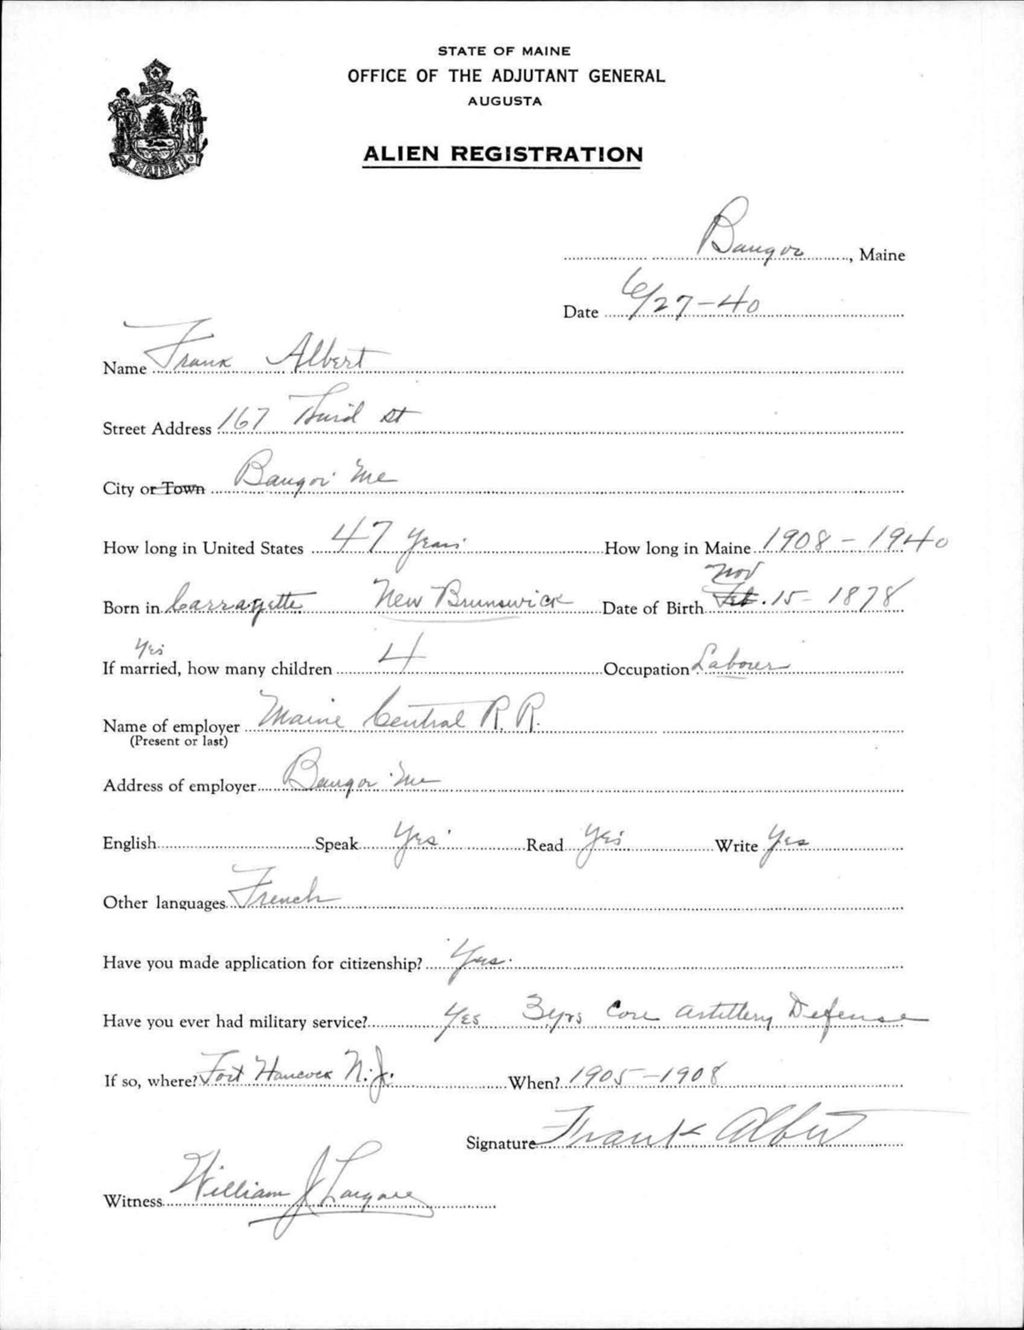 STATE OF MAINE
OFFICE OF THE ADJUTANT GENERAL
AUGUSTA
ALIEN REGISTRATION
MAINE
Bangor, Maine
Date 6/27-40
Name Frank Albert
Street Address 167 Third St
City or Town Bangor Me
How long in United States 47 years How long in Maine 1908 - 1940
Nov
Born in Carraquette New Brunswick Date of Birth Feb. 15 - 1878
Yes
If married, how many children 4 Occupation Laborer
Name of employer Maine Central R.R.
(Present or last)
Address of employer Bangor Me
English Speak Yes Read Yes Write Yes
Other languages French
Have you made application for citizenship? Yes.
Have you ever had military service? Yes 3 yrs Artillery Defense
If so, where? Fort Hancock N.J. When? 1905-1908
Signature Frank Albert
Witness William J